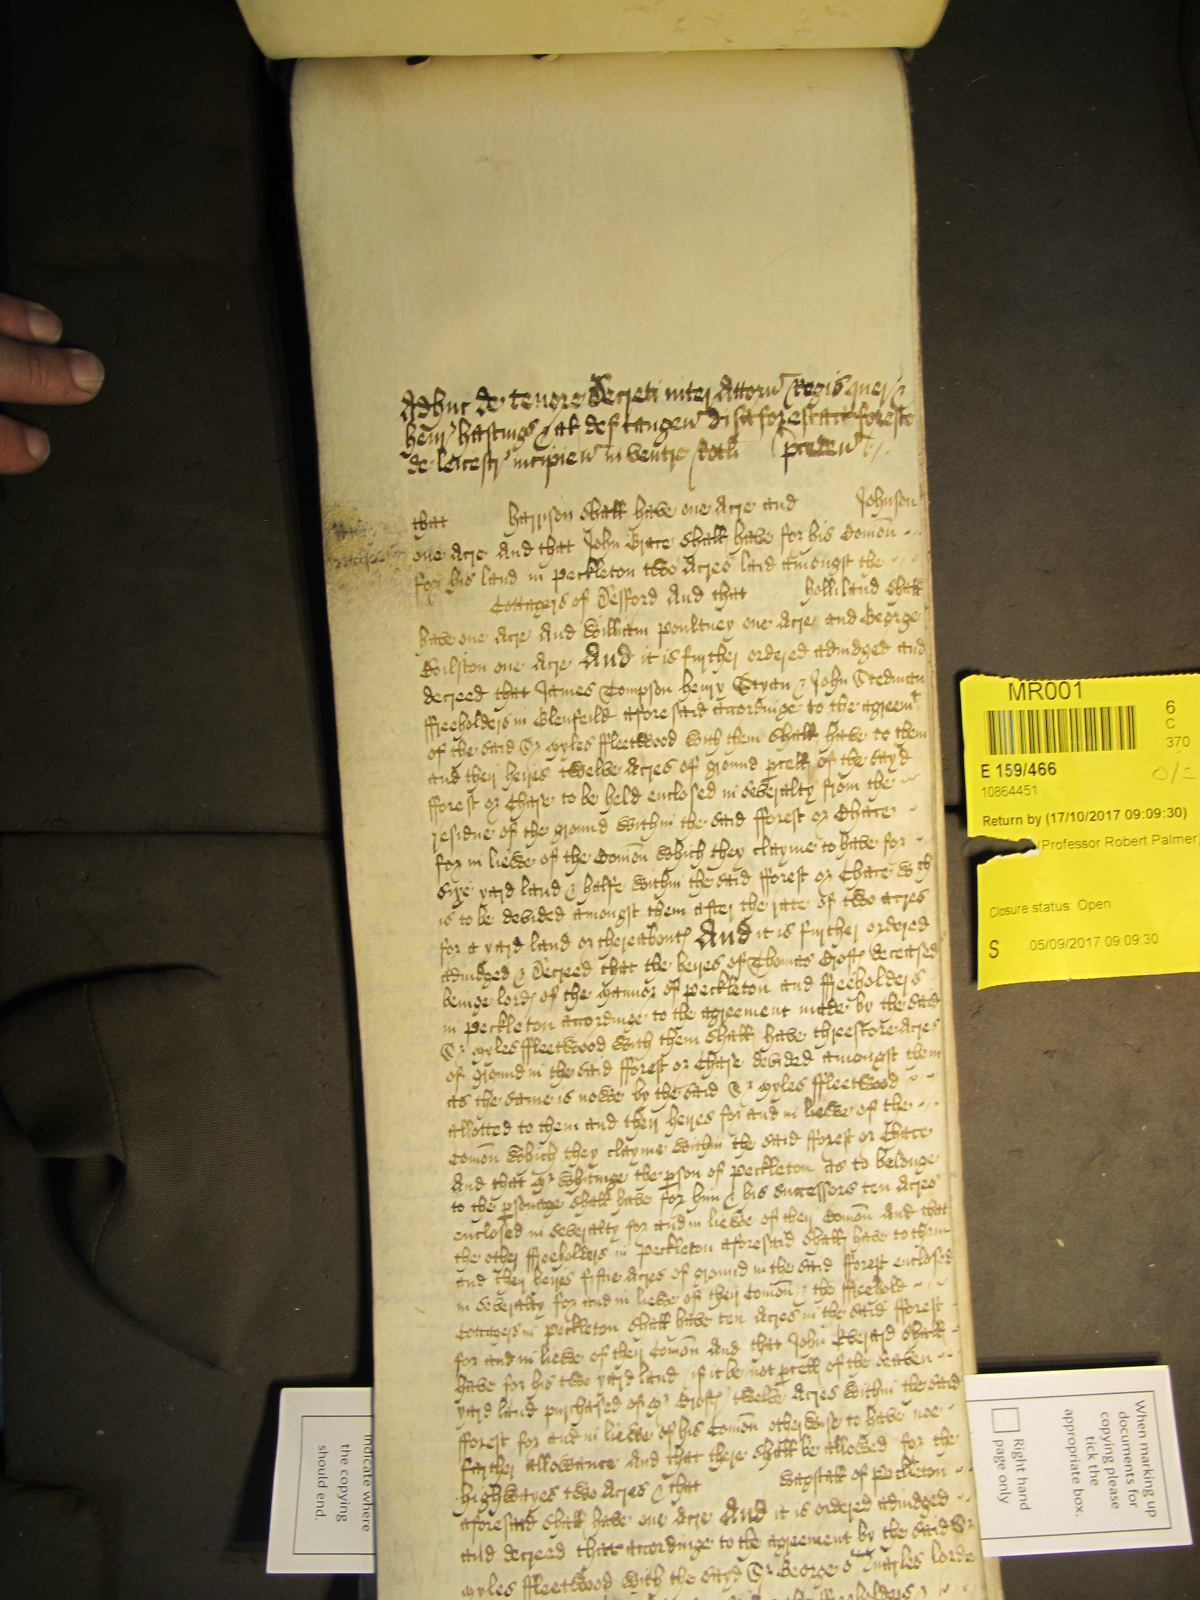 Adhuc de tenore Decreti inter Attorn Regis quer &
henr Hastings & al def tangen disafforestac foreste
de Leicestr incipien in ventre Rotli preden
that harrson shall have one Acre and Johnson
one Acre And that John Grace shall have for his Comon
for his land in Peckleton two Acres laid amongst the
Cottagers of Desford And that holliland shall
have one Acre And William Poultney one Acre and George
Wilston one Acre And it is further ordered adiudged and
decreed that James Tompson henry Bryan & John Stedman
ffreeholders in Glenfeild aforesaid accordinge to the agreemt
of the said Sr Myles ffleetwood with them shall have to them
and their heyres twelve Acres of ground pcell of the sayd
fforest or Chase to be held enclosed in severalty from the
residue of the ground within the said fforest or Chace
for in liewe of the Comon which they clayme to have for
sixe yard land & halfe within the said fforest or Chace wch
is to be devided amongst them after the rate of two acres
for a yard land or thereabouts And it is further ordered
adiudged & Decreed that the heyres of Thomas Croft deceased
beinge lords of the Mannor of Peckleton and ffreeholders
in Peckleton accordinge to the agreement made by the said
Sr Myles ffleetwood with them shall have threescore Acres
of ground in the said fforest or Chase devided amongst them
as the same is nowe by the said Sr Myles ffleetwood
allotted to them and their heyres for and in liewe of the
Comon which they clayme within the said fforest or Chace
And that Mr Whitinge the pson of Peckleton as to belonge
to the psonage shall have for him & his successors ten Acres
enclosed in severalty for and in liewe of their Comon And that
the other ffreeholders in Peckleton aforesaid shall have to them
and their heyres fiftie Acres of ground in the said fforest enclosed
in severalty for and in liewe of their Comon & the ffreehold
Cottagers in Peckleton shall have ten Acres in the said fforest
for and in liewe of their Comon And that John Everard shall
have for his two yard land if it be not pcell of the seaven
yard land purchased of Mr Croft twelve Acres within the said
fforest for and in liewe of his Comon otherwise to have noe
further allowance And that there shalbe allowed for the
highwayes two Acres & that Wagstaf of Peckleton
aforesaid shall have one Acre And it is ordered adiudged
and decreed that accordinge to the agreement by the said Sr
Myles ffleetwood with the sayd Sr George Quarles lorde
ffreeholders
MR001
6
C
370
E 159/466
10864451
Return by (17/10/2017 09:09:30)
(Professor Robert Palmer)
Closure status: Open
S 05/09/2017 09:09:30
Indicate where
the copying
should end.
When marking up
documents for
copying please
tick the
appropriate box.
Right hand
page only